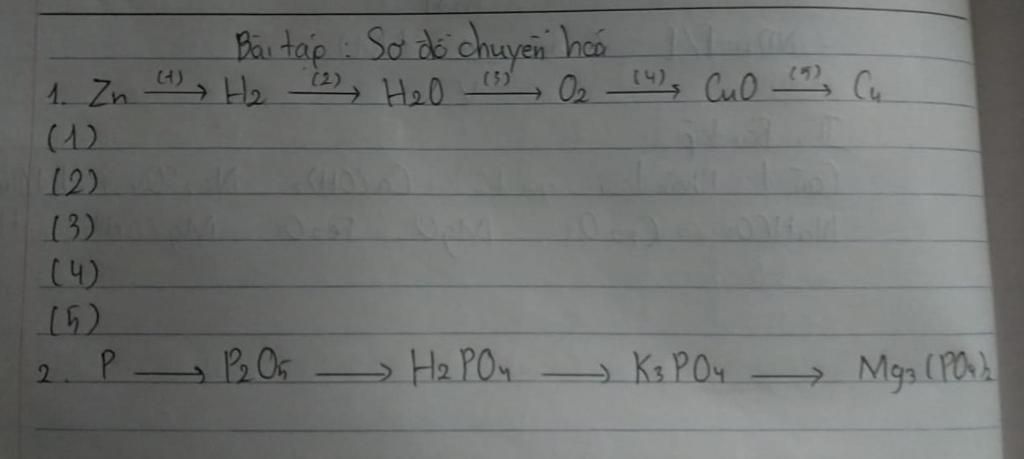 Bài tập : Sơ đồ chuyển hoá
1. Zn (1)→ H2 (2)→ H2O (3)→ O2 (4)→ CuO (5)→ Cu
(1)
(2)
(3)
(4)
(5)
2. P → P2O5 → H2PO4 → K3PO4 → Mg3(PO4)2